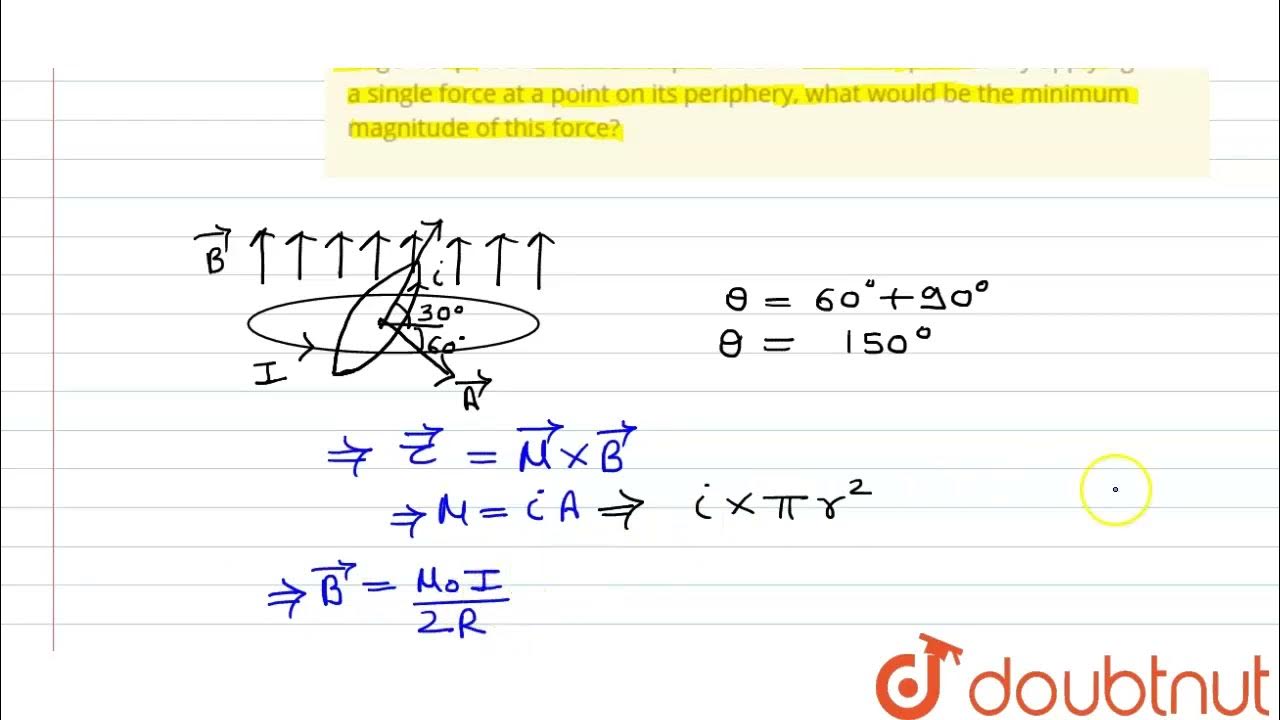 a single force at a point on its periphery, what would be the minimum
magnitude of this force?
B
i
30°
60°
I
A
θ = 60° + 90°
θ = 150°
⇒ τ = M × B
⇒ M = i A ⇒ i × π r²
⇒ B = μ₀ I / 2R
doubtnut